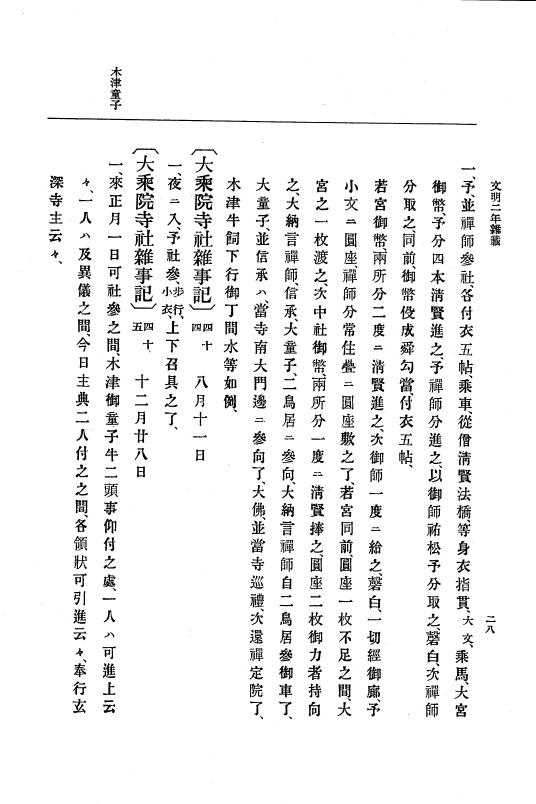 文明二年雜載
二八
木津童子
一、予並禪師參社、各付衣五帖、乘車、從僧淸賢法橋、等身衣指貫、大文、乘馬、大宮
御幣、予分四本淸賢進之、予禪師分進之、以御師祐松予分取之、磬白、次禪師
分取之、同前御幣役成舜勾當、付衣五帖、
若宮御幣、兩所分二度ニ淸賢進之、次御師一度ニ給之、磬白、一切經御廊、予
小文ニ圓座、禪師分常住疊ニ圓座敷之了、若宮同前、圓座一枚不足之間、大
宮之一枚渡之、次中社御幣、兩所分一度ニ淸賢捧之、圓座二枚御力者持向
之、大納言禪師、信承、大童子、二鳥居ニ參向、大納言禪師自二鳥居參御車了、
大童子、並信承ハ、當寺南大門邊ニ參向了、大佛、並當寺巡禮、次還禪定院了、
木津牛飼下行御丁間水等如例、
〔大乘院寺社雜事記〕四十四 八月十一日
一、夜ニ入、予社參、步行、小衣、上下召具之了、
〔大乘院寺社雜事記〕四十五 十二月廿八日
一、來正月一日可社參之間、木津御童子牛二頭事仰付之處、一人ハ可進上云
々、一人ハ及異儀之間、今日主典二人付之之間、各領狀可引進云々、奉行玄
深寺主云々、